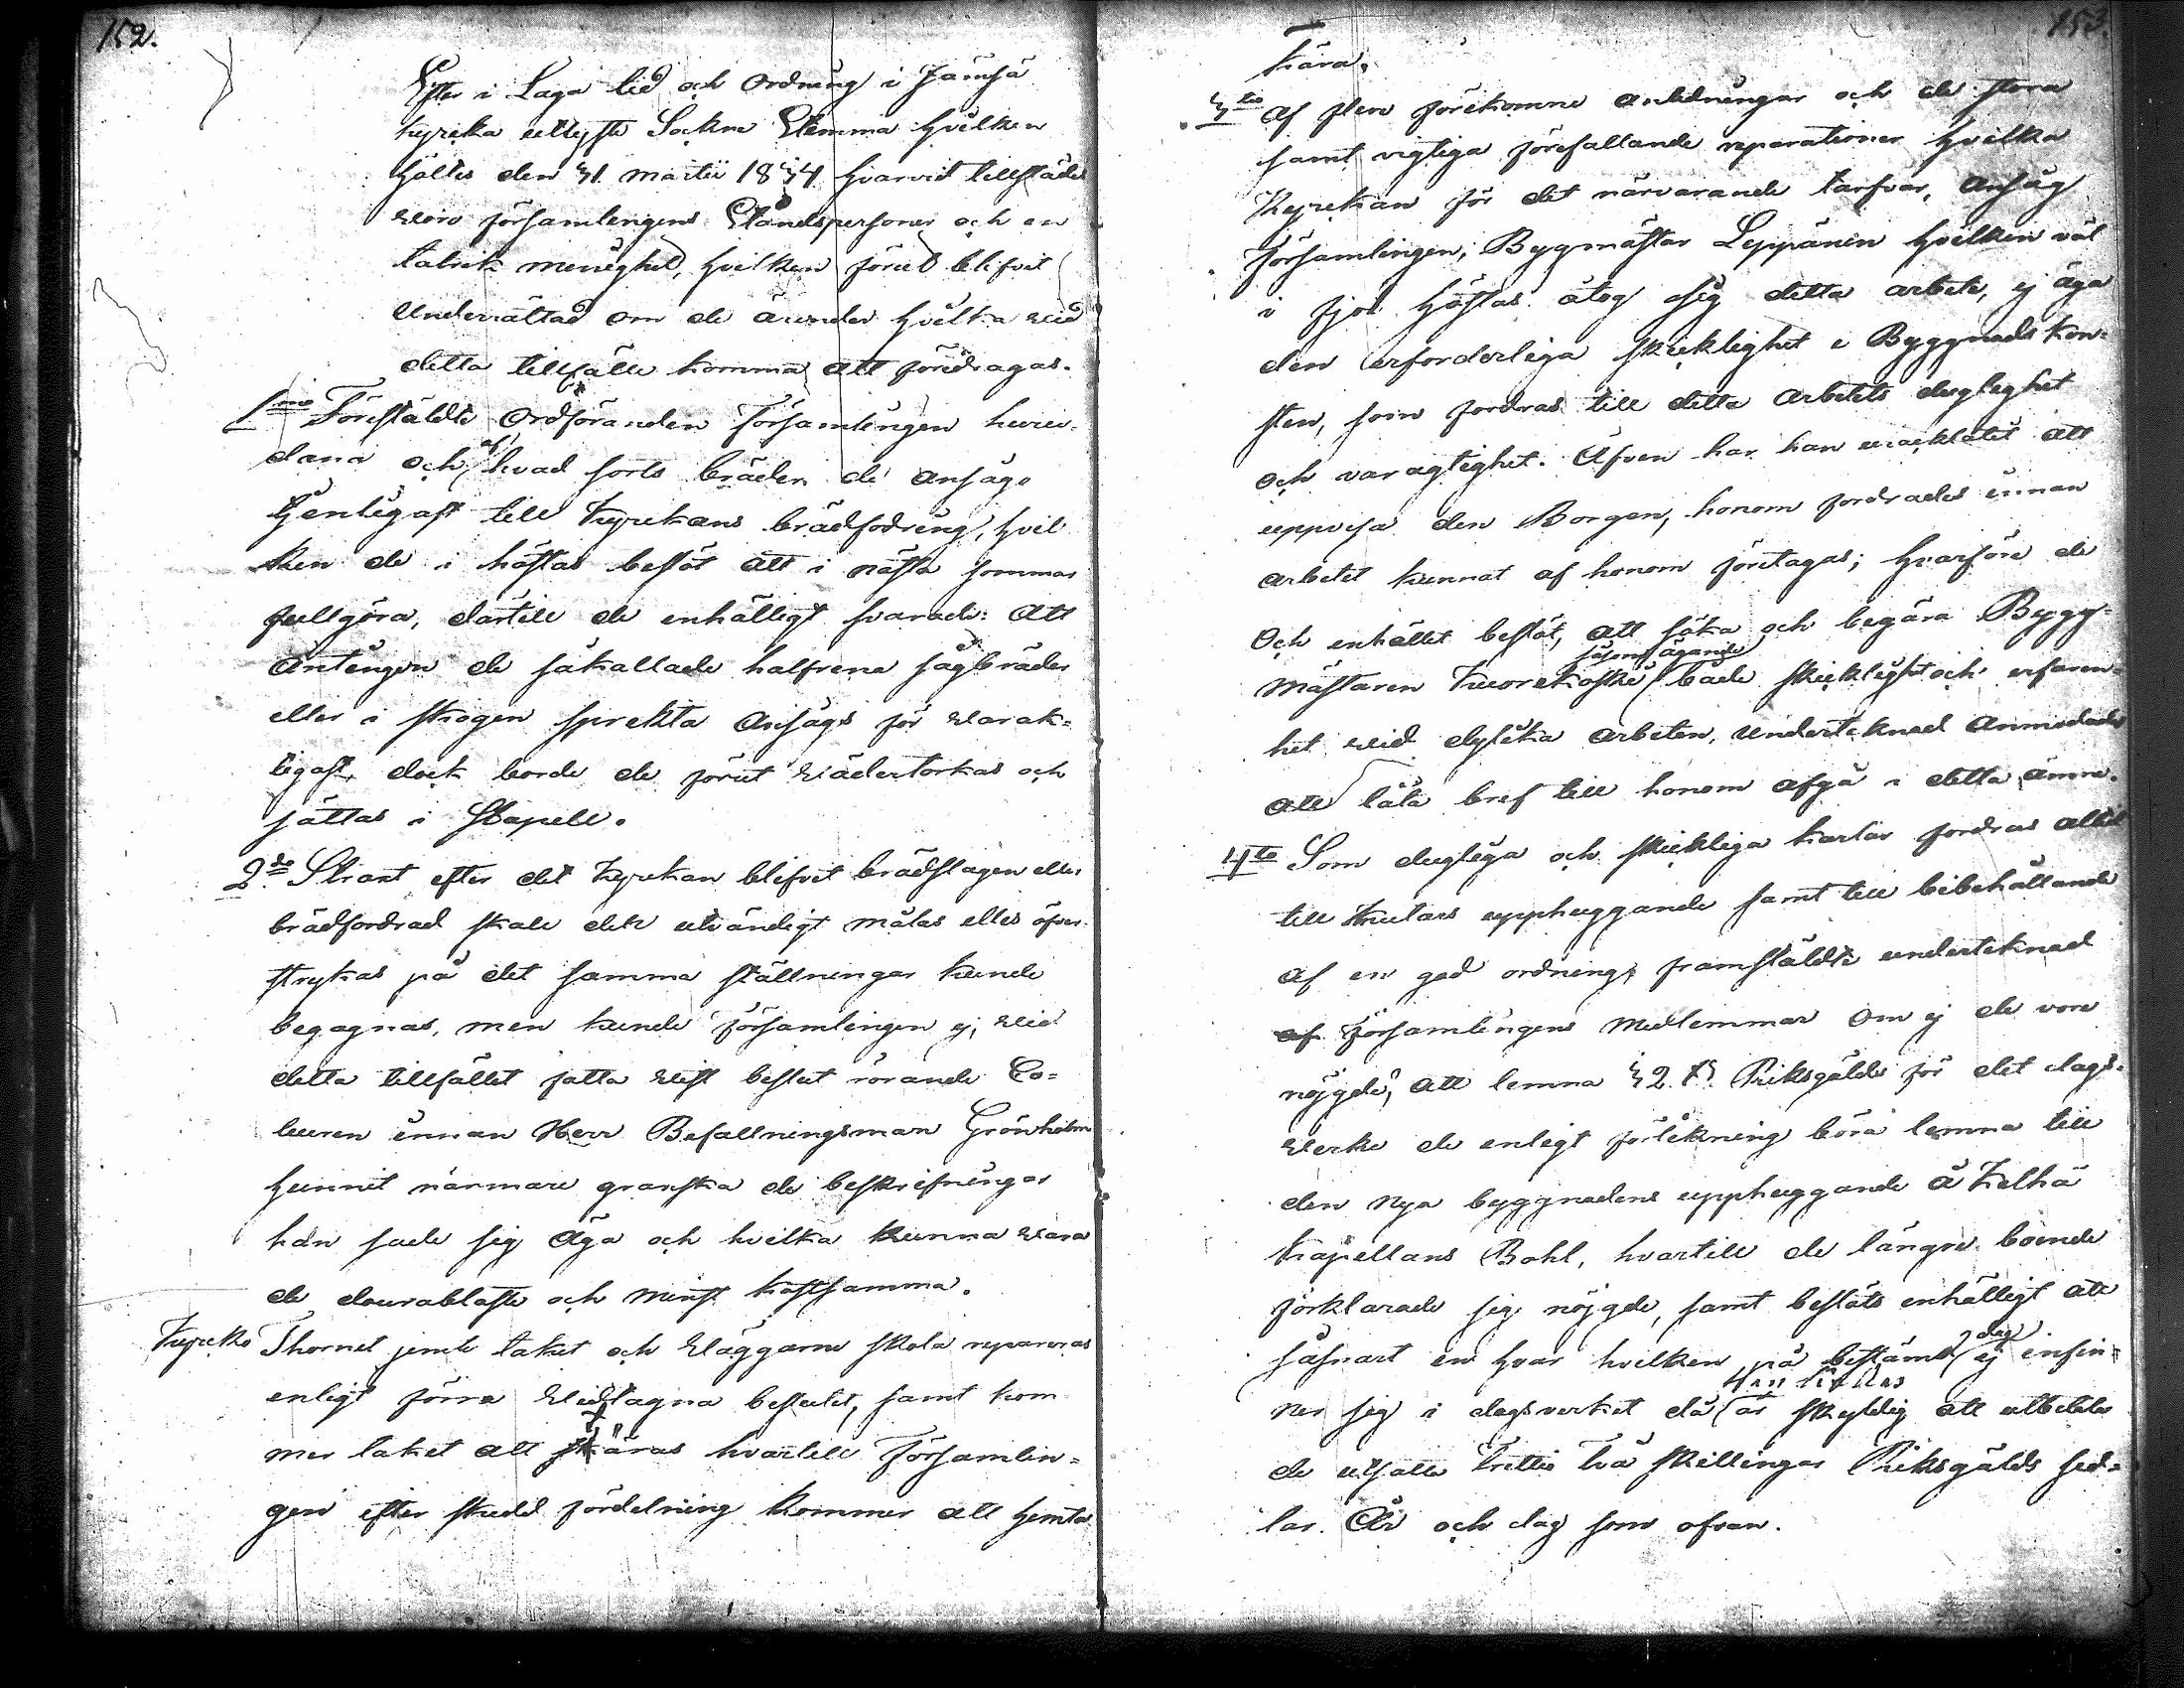 152.
Efter i Laga tid och Ordning i Jämsä
kyrcka utlyste Sockne Stemma hvilken
höltes den 31 martii 1834 hvarvid tillstädes
woro församlingens Ståndspersoner och en
talrik menighet, hvilken förut blifvit
Underrättad om de ärender hvilka wid
detta tillfälle komma att föredragas.
1mo Förestäldte Ordföranden Församlingen huru-
dana och af hvad sorts bräder de ansågo
tjenligast till Kyrckans brädfodring, hvil
ken de i höstas beslöt att i nästa sommar
fullgöra, därtill de enhälligt svarade: Att
Antingen de såkallade halfrena sågbräder
eller i skogen sprekta Ansågs för warak-
tigast, dock borde de förut wädertorkas och
sättas i Stapell.
2do Straxt efter det Kyrckan blifvit brädslagen eller
brädfordrad skall den utvändigt målas eller öfver-
strykas på det samma ställningar kunde
begagnas, men kunde församlingen ej wid
detta tillfället fatta wist beslut rörande Co-
leuren innan Herr Befallningsman Grönholm
hunnit närmare granska de beskrifningar
han sade sig Äga och hvilka kunna wara
de dourablaste och minst kostsamma.
Kyrcko Thornet jemte taket och wäggarne skola repareras
enligt förra widtagna beslutet, samt kom
mer taket att tjäras hvartill Församlin-
gen efter skedd fördelning kommer att hemta
153.
tjära.
3tio Af flere förekomne anledningar och de stora
samt vigtiga förefallande reparationer hvilka
Kyrckan för det närvarande tarfvar, Ansåg
Församlingen, Bygmästar Leppänen hvilken väl
i fjol höstas åtog sig detta arbete, ej äga
den erforderliga skicklighet i Byggnads kon-
sten, som fordras till detta arbetets duglighet
och varagtighet. Äfven har han uraklåtit att
uppvisa den Borgen, honom fordrades innan
arbetet kunnat af honom företagas; hvarföre de
Och enhället beslöt, att söka och begära Bygg-
mästaren Kuorikoski såsom ägande både skicklighet och erfaren-
het wid dylika arbeten, Undertecknad Anmodades
att låta bref till honom afgå i detta ämne.
4to Som dugliga och skickliga karlar fordras alltid
till knutars upphuggande samt till bibehållande
af en god ordning, framstäldte undertecknad
af församlingens medlemmar Om ej de vore
nöjgde, att lemna 32 s. Riksgälds för det dags-
werke de enligt förlikning böra lemna till
den nya byggnadens upphuggande å Kelhä
kapellans Bohl, hvartill de längre boende
förklarade sig nöjgde, samt beslöts enhälligt att
såsnart en hvar hvilken på bestämd dag ej infin-
ner sig i dagsverket då är skyldig att utbetala
de utsatte Trettio två skillingar Riksgälds sed-
lar. År och dag som ofvan.